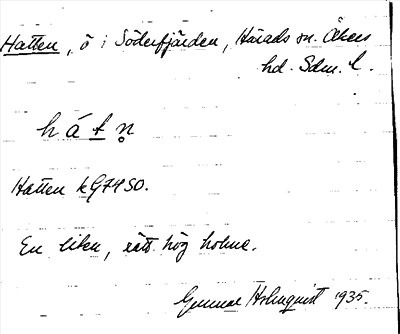 Hatten, ö i Söderfjärden, Härads sn. Åkers
hd. Sdm. l.
h á t n̥
Hatten kG7450.
En liten, rätt hög holme.
Gunnar Holmquist 1935.